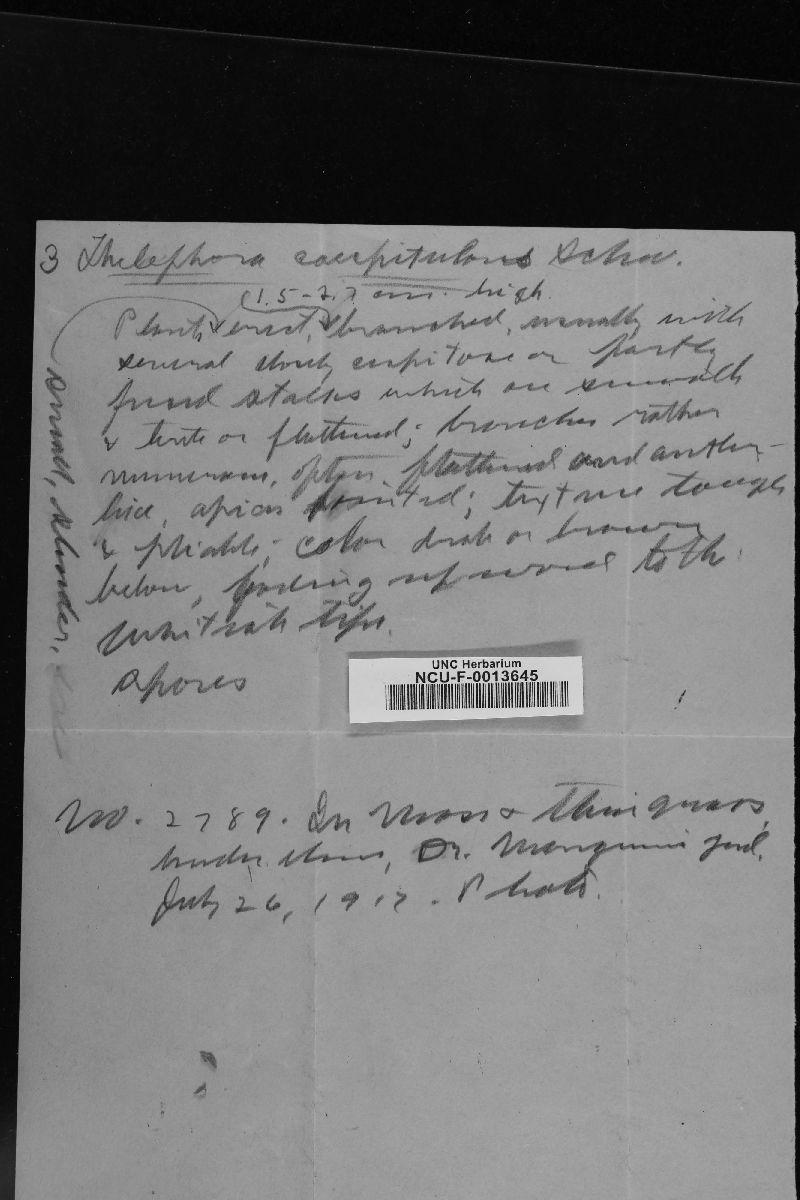 3 Thelephora caespitulans Schw.
(1.5-2.7 cm. high
Plants erect, branched, usually with
several closely cespitose or partly
fused stalks which are smooth
& terete or flattened; branches rather
numerous, often flattened and antler-
like, apices pointed; texture tough
& pliable; color drab or brown
below, fading upward to the
whitish tips.
small, slender,
Spores
UNC Herbarium
NCU-F-0013645
No. 2789. In moss & thin grass,
under elms, Dr. yard.
July 26, 1917. Photo.